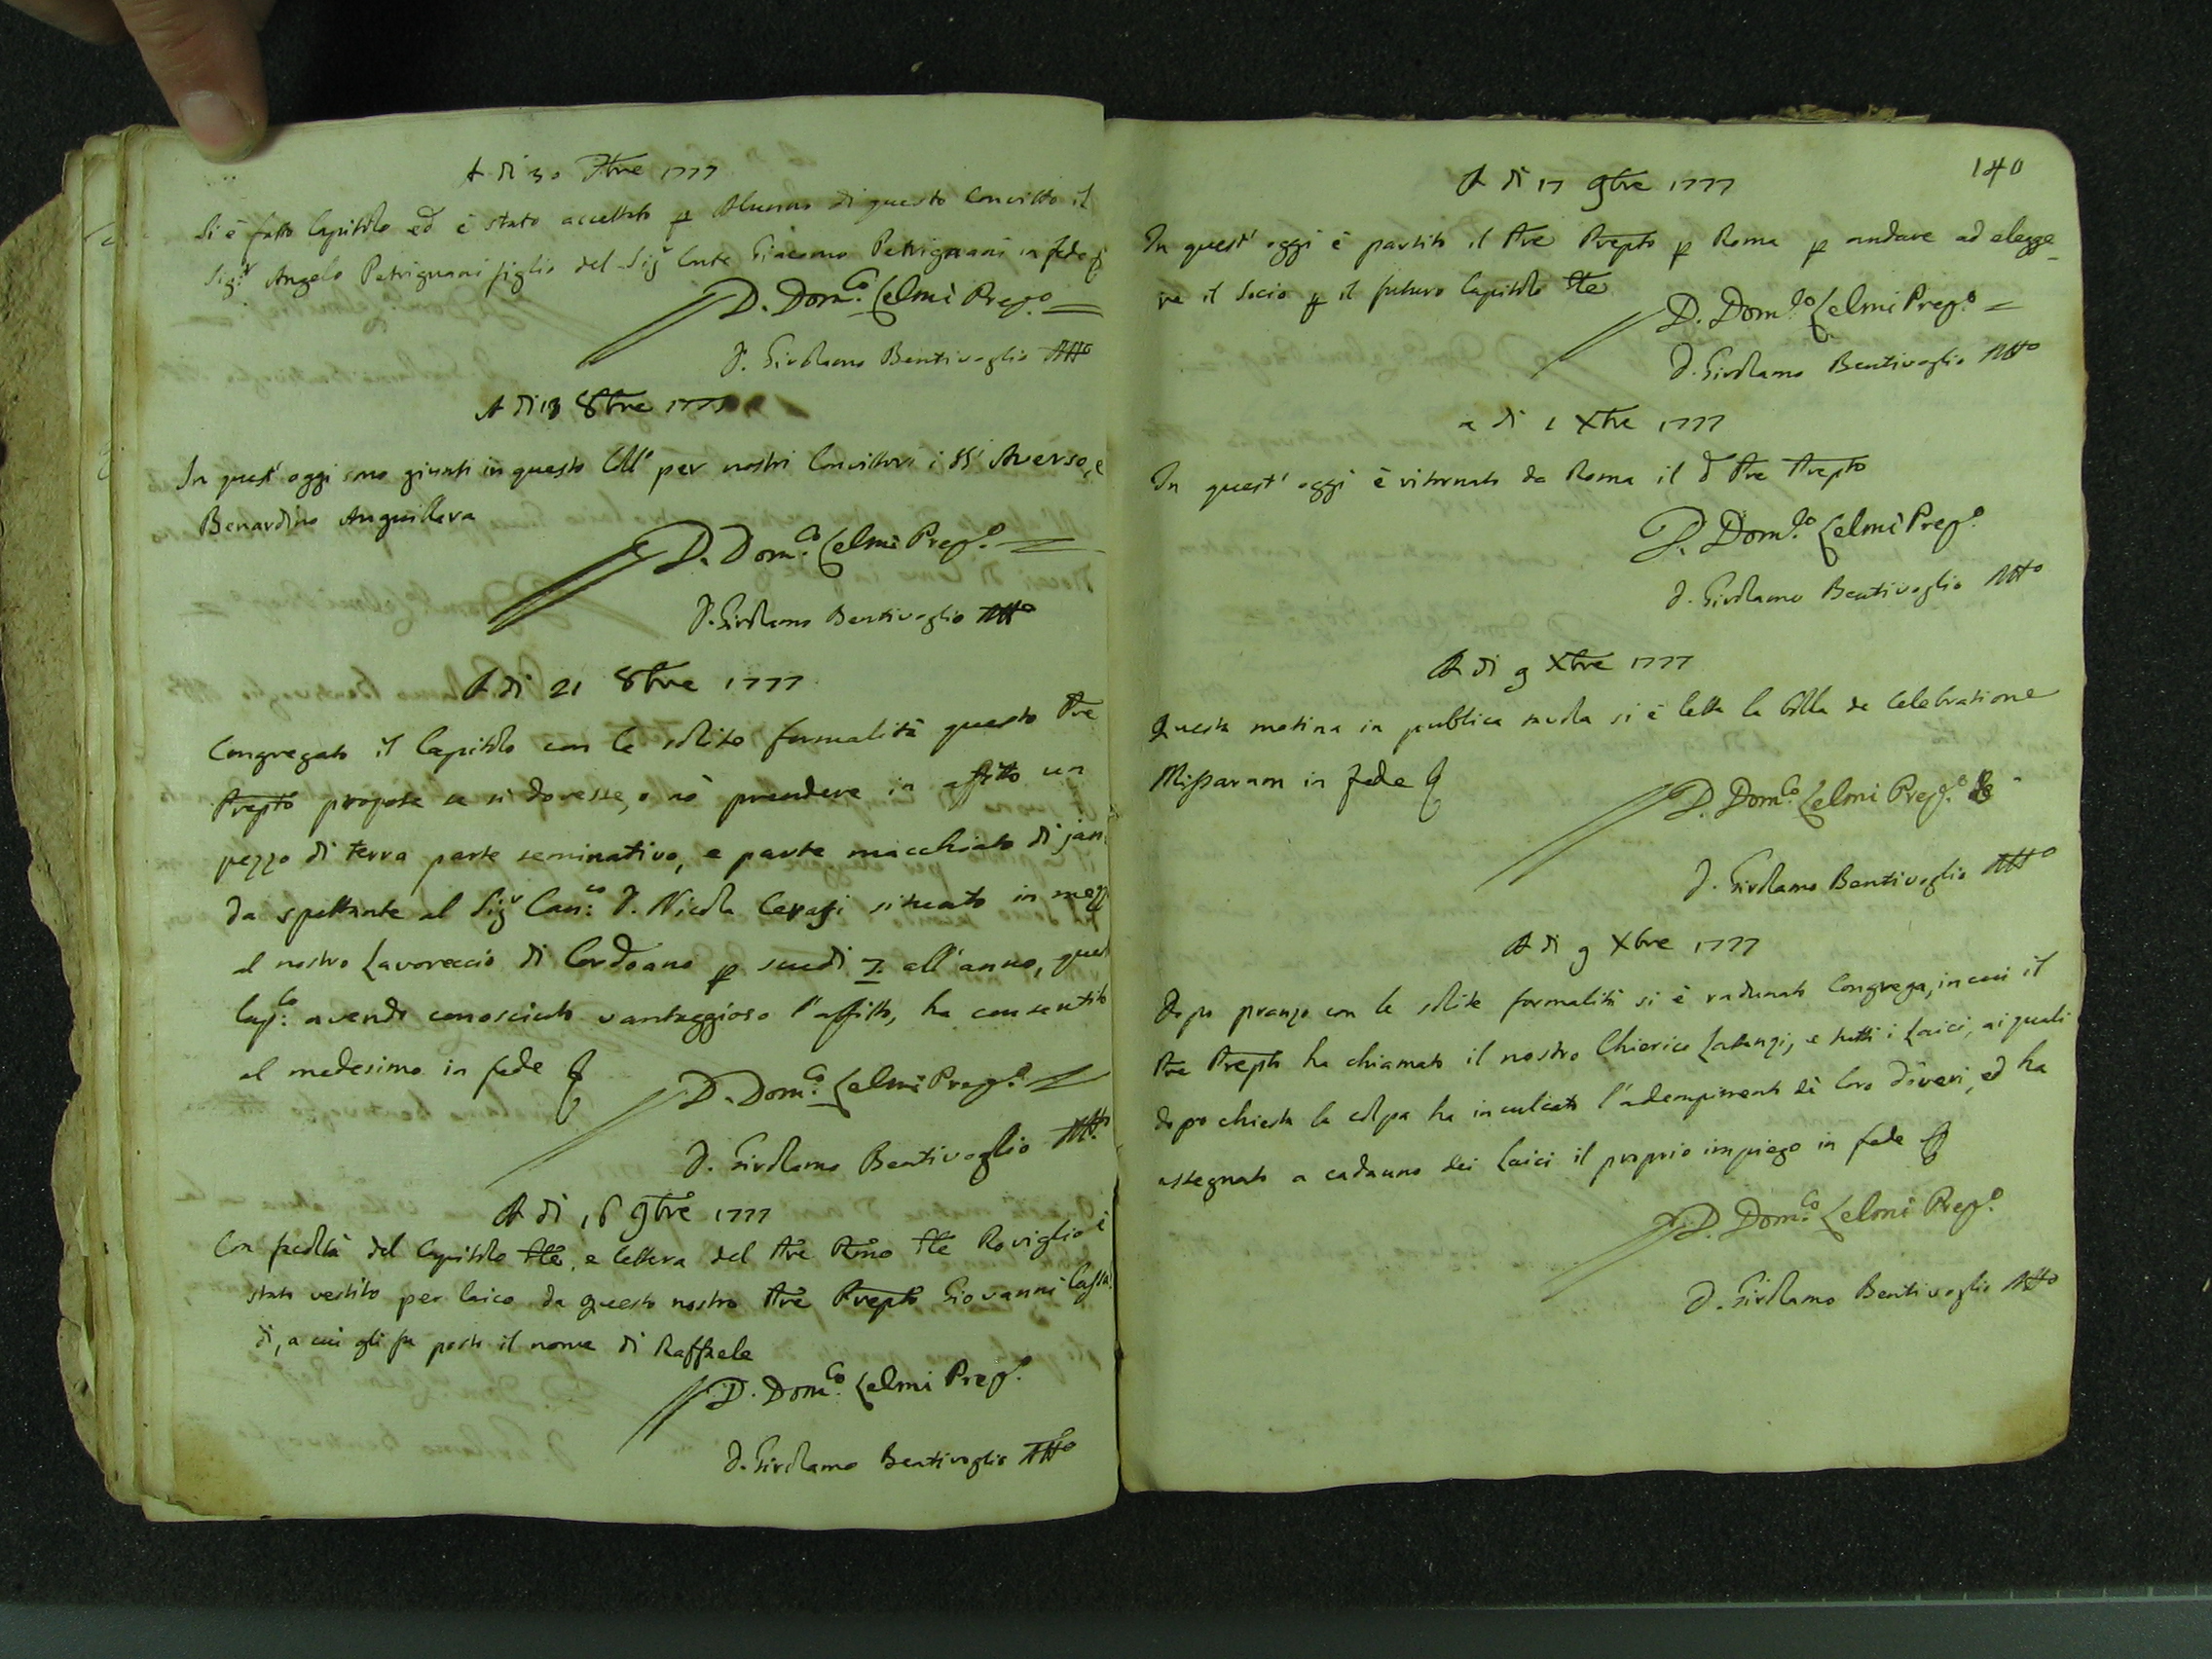 A dì 30 7bre 1777
Si è fatto Capitolo ed è stato accettato p Alunno di questo Convitto il
Sig.r Angelo Petrignani figlio del Sig.r Conte Giacomo Petrignani in fede
D. Dom.co Zelmi Prep.o
D. Girolamo Bentivoglio Att.o
A dì 13 8bre 1777
In quest'oggi sono giunti in questo Coll.o per nostri Convittori i SS.i Averso, e
Benardino Anguillara
D. Dom.co Zelmi Prep.o
D. Girolamo Bentivoglio Att.o
A dì 21 8bre 1777
Congregato il Capitolo con le solite formalità questo Pre
Prepto propose se si dovesse, o nò prendere in affitto un
pezzo di terra parte seminativo, e parte macchiato di jan
da spettante al Sig.r Can.co D. Nicola Cerasi situato in mezz
al nostro Lavoreccio di Cordoano p scudi 7. all'anno, ques
Cap.lo avendo conosciuto vantaggioso l'affitto, ha consentito
al medesimo in fede
D. Dom.co Zelmi Prep.o
D. Girolamo Bentivoglio Att.o
A dì 16 9bre 1777
Con facoltà del Capitolo Gle, e lettera del Pre Rmo Gle Roviglio è
stato vestito per laico da questo nostro Pre Prepto Giovanni Cassa
di, a cui gli fu posto il nome di Raffaele
D. Dom.co Zelmi Prep.o
D. Girolamo Bentivoglio Att.o
140
A dì 17 9bre 1777
In quest'oggi è partito il Pre Prepto p Roma p andare ad elegge
re il Socio p il futuro Capitolo Gle
D. Dom.co Zelmi Prep.o
D. Girolamo Bentivoglio Att.o
a dì 1 Xbre 1777
In quest'oggi è ritornato da Roma il d Pre Prepto
D. Dom.co Zelmi Prep.o
D. Girolamo Bentivoglio Att.o
A dì 9 Xbre 1777
Questa matina in publica tavola si è letta la bolla de Celebratione
Missarum in fede
D. Dom.co Zelmi Prep.o
D. Girolamo Bentivoglio Att.o
A dì 9 Xbre 1777
Dopo pranzo con le solite formalità si è radunato Congrega, in cui il
Pre Prepto ha chiamato il nostro Chierico Lattanzi, e tutti i Laici, ai quali
dopo chiesta la colpa ha inculcato l'adempimento di loro doveri, ed ha
assegnato a cadauno dei Laici il proprio impiego in fede
D. Dom.co Zelmi Prep.o
D. Girolamo Bentivoglio Att.o